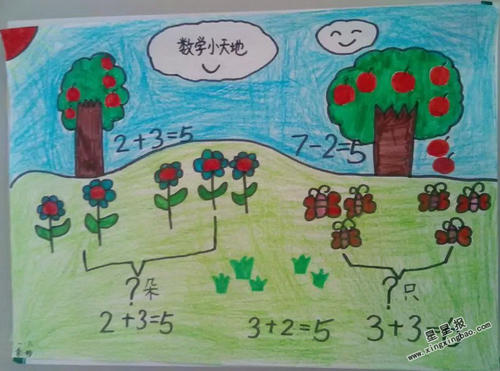 数学小天地
2+3=5
7-2=5
?朵
?只
2+3=5
3+2=5
3+3=
星星报
www.xingxingbao.com